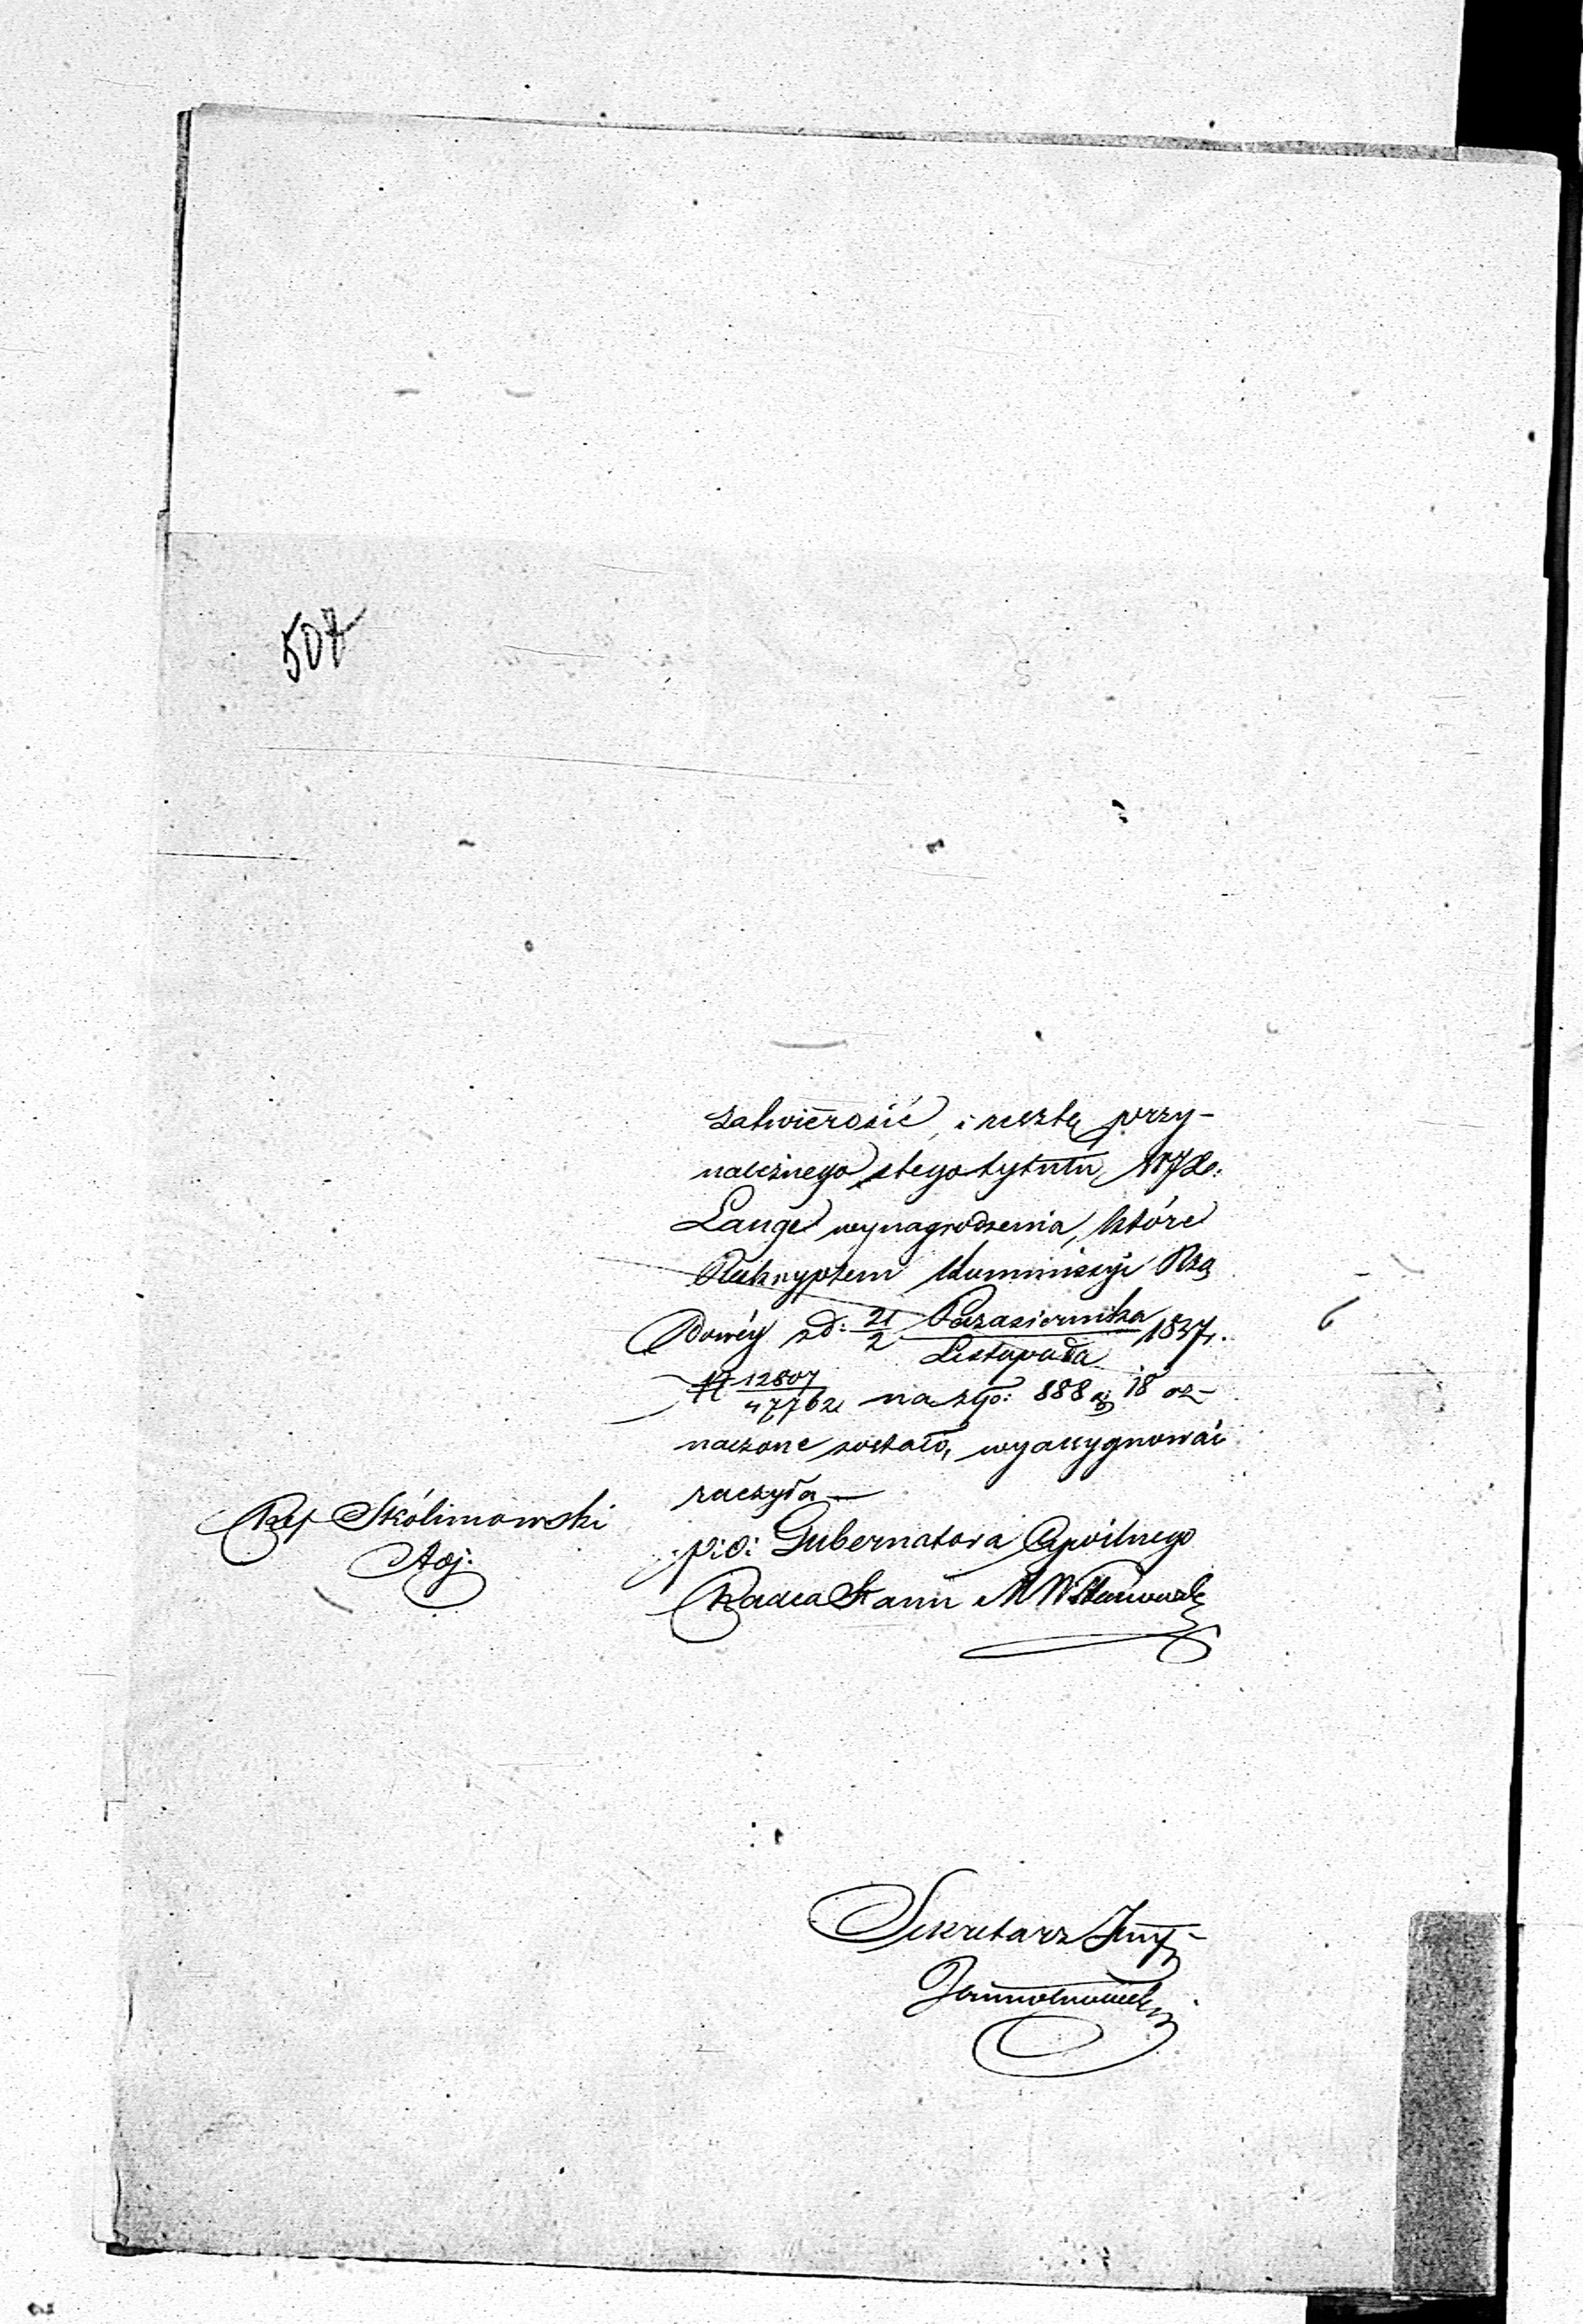 507
zatwierdzić, i resztę przy-
należnego z tego tytułu
Lange wynagrodzenia, które
Reskryptem Kommissyi Rzą
dowéy z d: 21/2 Pazdziernika/Listopada 1837 r.
N 12807/47762 na złp: 888 gr 18 oz-
naczone zostało, wyassygnować
raczyła —
Ref Skólimowski
Adj.
p: o: Gubernatora Cywilnego
Radca Stanu
Sekretarz